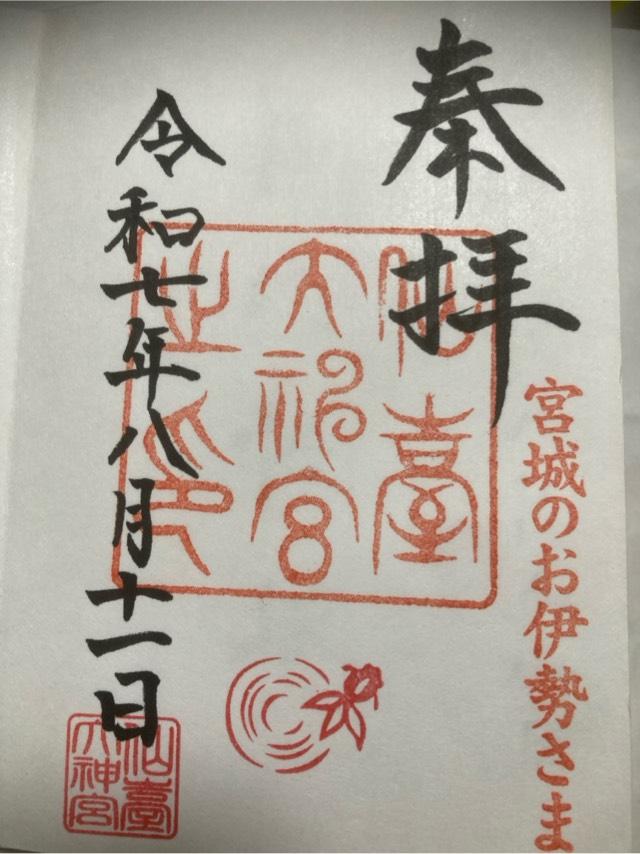 奉拝
宮城のお伊勢さま
仙臺
大神宮
之印
令和七年八月十一日
仙臺
大神宮